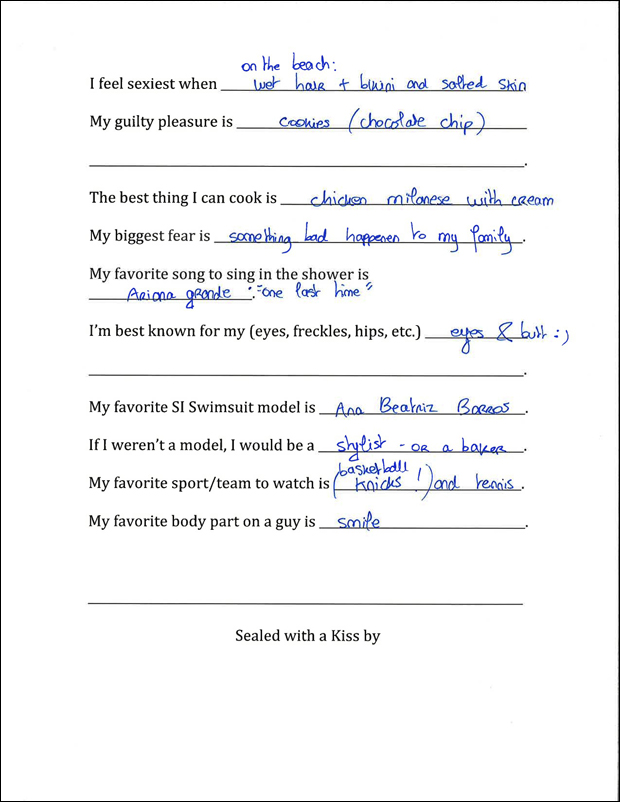 on the beach:
I feel sexiest when wet hair + bikini and salted skin
My guilty pleasure is cookies (chocolate chip)
.
The best thing I can cook is chicken milanese with cream
My biggest fear is something bad happenen to my family.
My favorite song to sing in the shower is
Ariana grande : "one last time"
I'm best known for my (eyes, freckles, hips, etc.) eyes & butt :)
.
My favorite SI Swimsuit model is Ana Beatriz Barros.
If I weren't a model, I would be a stylist - or a baker.
basketball
My favorite sport/team to watch is (Knicks!) and tennis.
My favorite body part on a guy is smile.
Sealed with a Kiss by